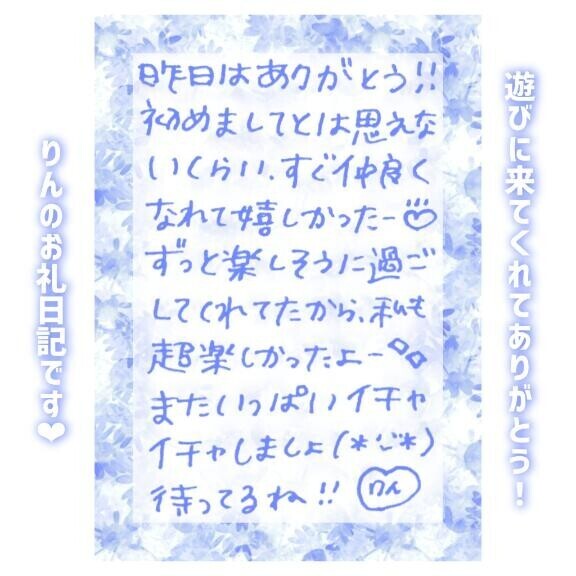 遊びに来てくれてありがとう！
昨日はありがとう!!
初めましてとは思えな
いくらい、すぐ仲良く
なれて嬉しかったー♡
ずっと楽しそうに過ご
してくれてたから、私も
超楽しかったよー
またいっぱいイチャ
イチャしましょ(*ˊᵕˋ*)
待ってるね!! りん
りんのお礼日記です❤